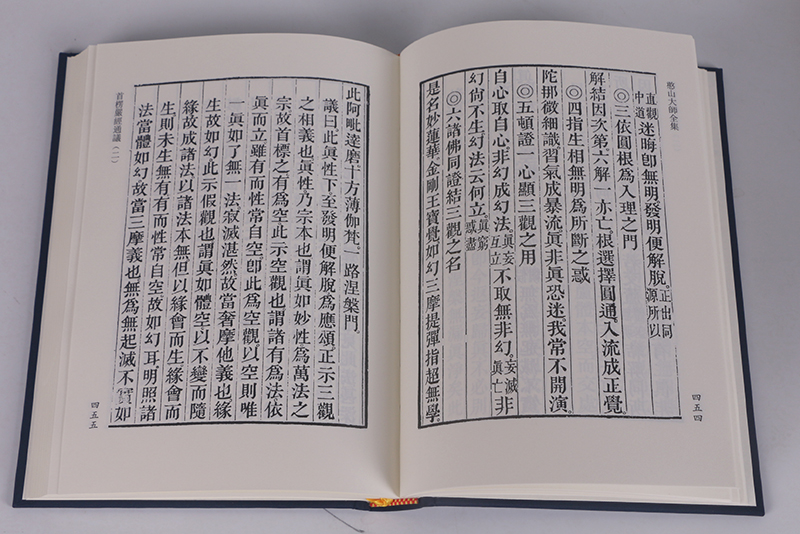 憨山大師全集
四五四
直觀中道迷晦卽無明發明便解脫。正出同源所以
◎三依圓根爲入理之門
解結因次第六解一亦亡根選擇圓通入流成正覺
◎四指生相無明爲所斷之惑
陀那微細識習氣成暴流眞非眞恐迷我常不開演。
◎五頓證一心顯三觀之用
自心取自心非幻成幻法。眞妄互立不取無非幻。妄滅眞亡非
幻尚不生幻法云何立。眞窮惑盡
◎六諸佛同證結三觀之名
是名妙蓮華金剛王寶覺如幻三摩提彈指超無學。
此阿毗達磨十方薄伽梵一路涅槃門。
議曰此眞性下至發明便解脫爲應頌。正示三觀
之相義也眞性乃宗本也謂眞如妙性爲萬法之
宗故首標之有爲空此示空觀也謂諸有爲法依
眞而立雖有而性常自空卽此爲空觀以空則唯
一眞如了無一法寂滅湛然故當奢摩他義也緣
生故如幻此示假觀也謂眞如體空以不變而隨
緣故成諸法以諸法本無但以緣會而生緣會而
生則未生無有有而性常自空故如幻耳明照諸
法當體如幻故當三摩義也無爲無起滅不實如
首楞嚴經通議(二)
四五五